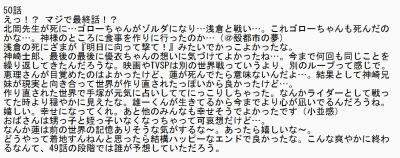 50話
えっ！？ マジで最終話！？
北岡先生が死に…ゴローちゃんがゾルダになり…浅倉と戦い…。これゴローちゃんも死んだのかな…。神様のところに食事を作りに行ったのか…（＠般都市の夢）
浅倉の死にざまが『明日に向って撃て！』みたいでかっこよかったな。
神崎士郎、最後の最後に優衣ちゃんの想いに気づけてよかったね…。今まで何回も同じことを繰り返してきたんだろうな。映画やTVSPは別の世界戦っていうより、別のループって感じで。
恵理さんが目覚めたのはよかったけど、蓮が死んでたら意味ないんだよ…。結果として神崎兄妹が現実と向き合って世界が作り直されたっぽいから良かったけど…。
作り直された世界で手塚が元気に占いしててにっこりしちゃった。なんかライダーとして戦ってた時より穏やかに見えたな。雄一くんが生きてるから今までより心が凪いでるんだろうね。嬉しい。幸せになってくれ。あと他のみんなも幸せそうでよかったです（小並感）
おばさんは甥っ子と姪っ子いなくなっちゃって可哀想だけど…。
なんか蓮は前の世界の記憶ありそうな気がするな～。あったら嬉しいな～。
どうやって着地すんねんと思ったら結構ハッピーなエンドで良かったな。こんな爽やかに終わるなんて、49話の段階では誰が予想していただろう。